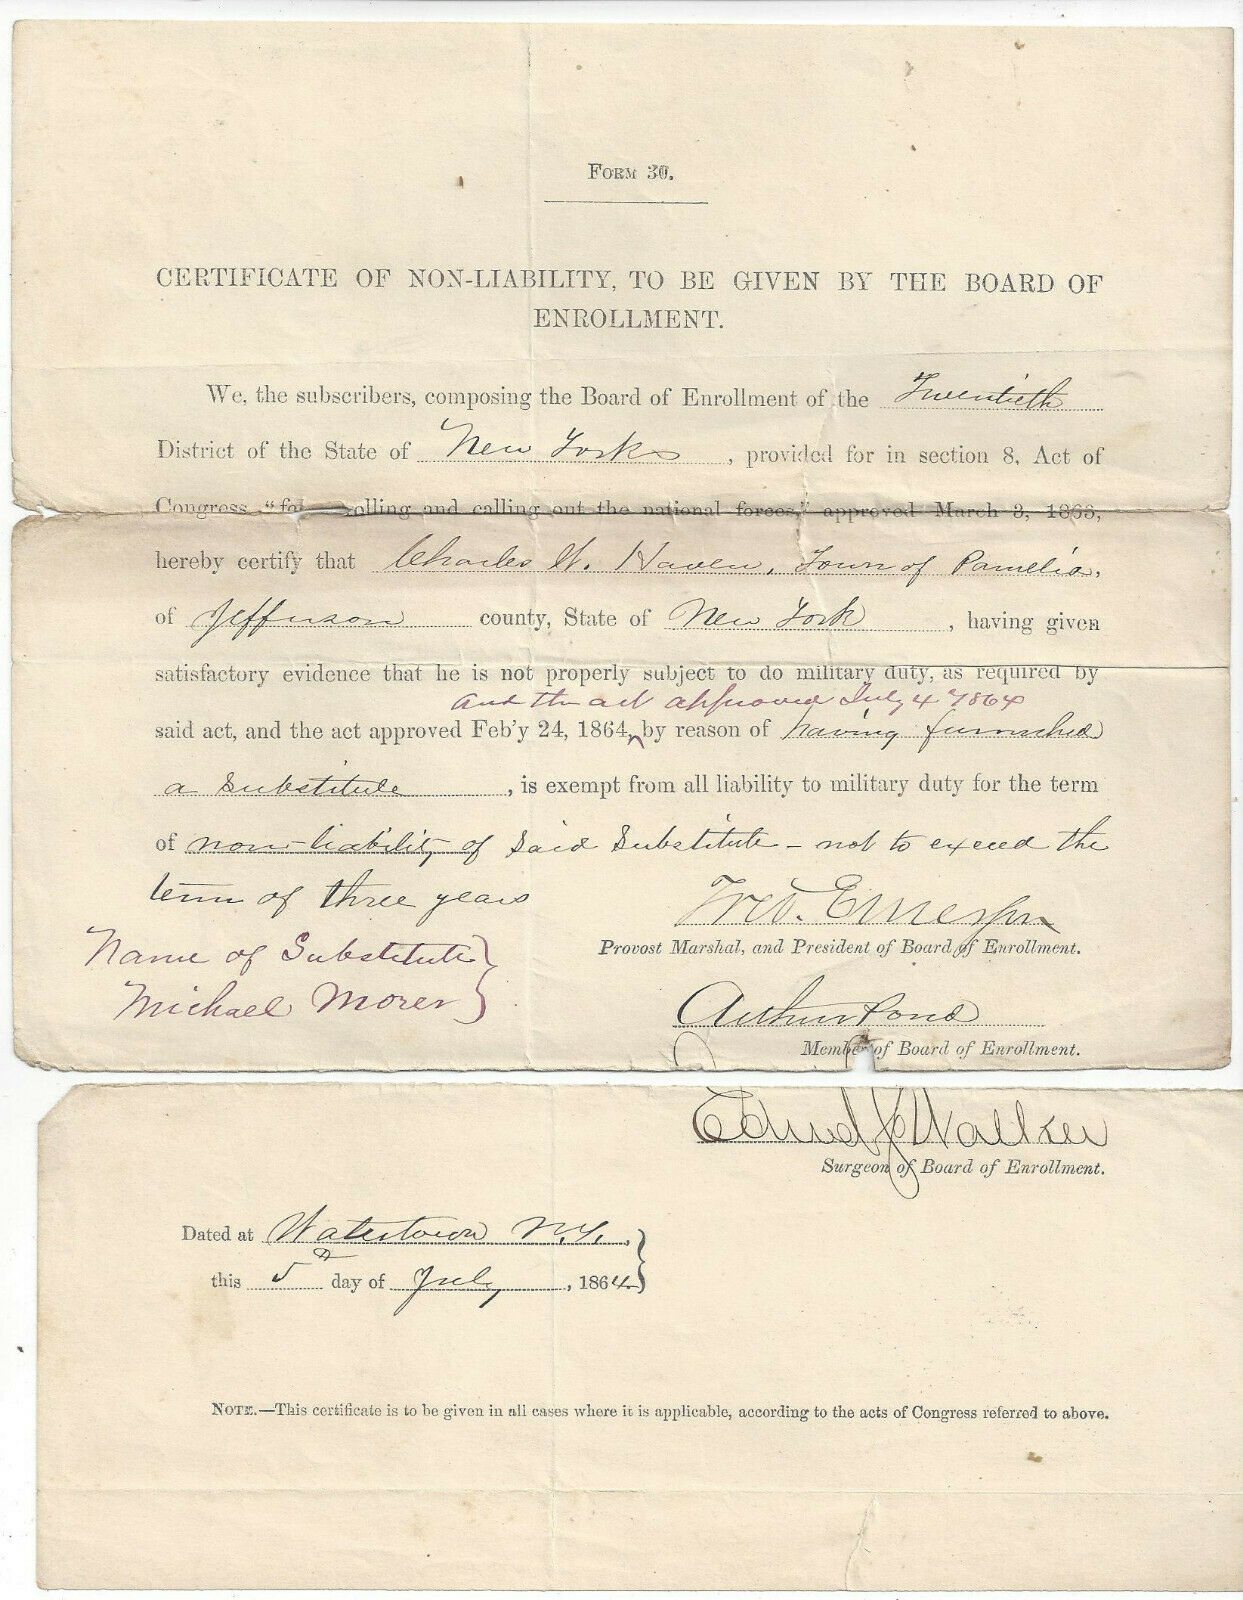 FORM 30.
CERTIFICATE OF NON-LIABILITY, TO BE GIVEN BY THE BOARD OF
ENROLLMENT.
We, the subscribers, composing the Board of Enrollment of the Twentieth
District of the State of New York, provided for in section 8, Act of
Congress "for enrolling and calling out the national forces," approved March 3, 1863,
hereby certify that Charles W. Haven, Town of Pamelia,
of Jefferson county, State of New York, having given
satisfactory evidence that he is not properly subject to do military duty, as required by
and the act approved July 4 1864
said act, and the act approved Feb'y 24, 1864, by reason of having furnished
a Substitute, is exempt from all liability to military duty for the term
of non-liability of Said Substitute - not to exceed the
term of three years
Fred. Emerson
Provost Marshal, and President of Board of Enrollment.
Name of Substitute
Michael Morer
Arthur Pond
Member of Board of Enrollment.
Edund Walker
Surgeon of Board of Enrollment.
Dated at Watertown N.Y.,
this 5th day of July, 1864
NOTE.—This certificate is to be given in all cases where it is applicable, according to the acts of Congress referred to above.